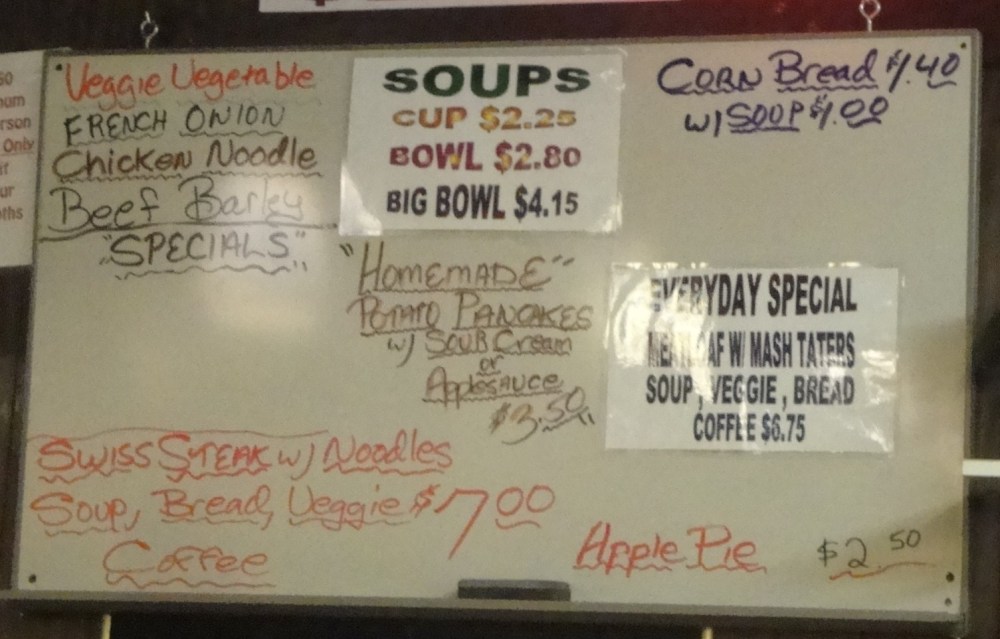 Veggie Vegetable
FRENCH ONION
Chicken Noodle
Beef Barley
"SPECIALS"
SOUPS
CUP $2.25
BOWL $2.80
BIG BOWL $4.15
CORN Bread $1.40
W/ SOUP $1.00
"HOMEMADE"
POTATO PANCAKES
W/ SOUR Cream
or
ApplesAuce
$3.50
EVERYDAY SPECIAL
MEATLOAF W/ MASH TATERS
SOUP, VEGGIE, BREAD
COFFEE $6.75
SWISS STEAK W/ Noodles
Soup, Bread, Veggie $7.00
Coffee
Apple Pie $2.50
Only